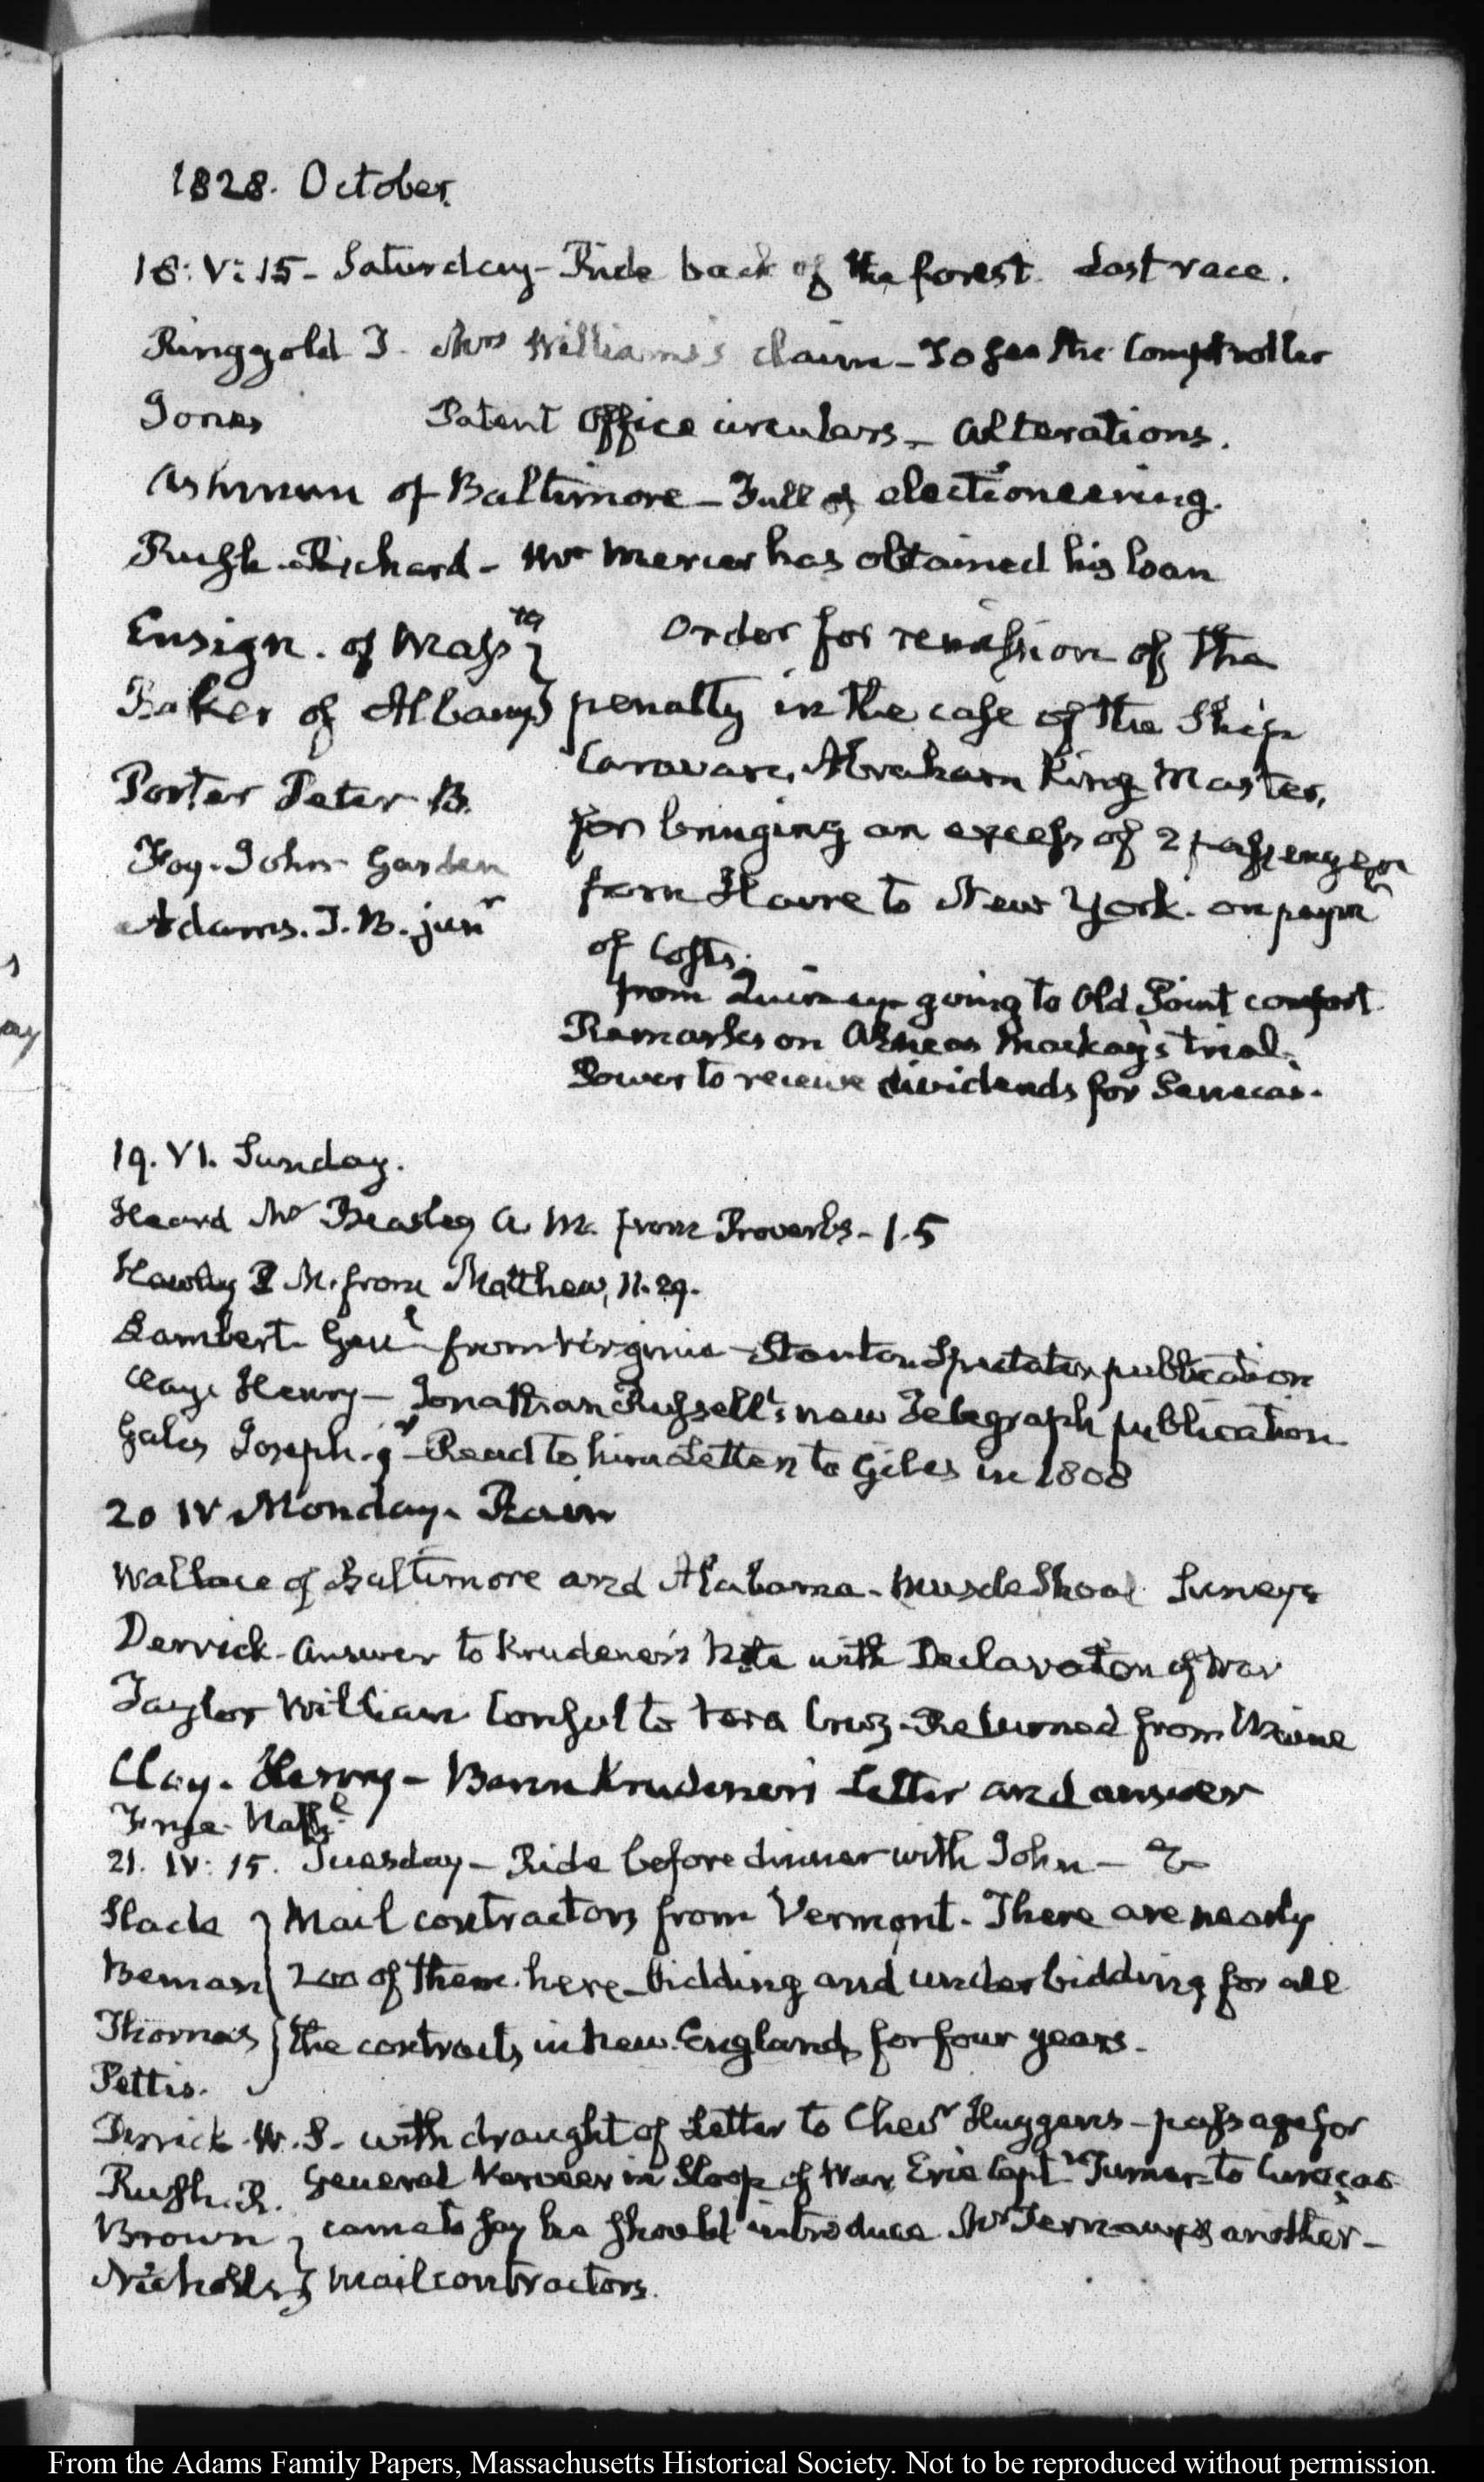 1828. October.
18: V: 15 - Saturday - Ride back of the forest. Last race.
Ringgold T. Mrs Williams's claim - To see the Comptroller
Jones Patent Office circulars - Alterations.
Ashmun of Baltimore - Full of electioneering.
Rush. Richard - Mr Mercer has obtained his loan
Ensign. of Massts } Order for remission of the
Baker of Albany } penalty in the case of the Ship
Porter Peter B. Caravan, Abraham King Master,
for bringing an excess of 2 passengers
Foy. John Garden from Havre to New York. on paymt
Adams. T. B. junr of Costs.
from Quincy going to Old Point comfort
Remarks on Aeneas Mackay's trial.
Power to receive dividends for Senecas.
19. VI. Sunday.
Heard Mr Beasley A. M. from Proverbs - 1.5
Hawley P M. from Matthew, 11.29.
Lambert Genl from Virginia - Stanton Spectator publication
Clay. Henry - Jonathan Russell's new Telegraph publication
Gales Joseph. jr - Read to him Letters to Giles in 1808
20 IV Monday. Rain
Wallace of Baltimore and Alabama - Muscle Shoal Surveys
Derrick. Answer to Krudener's Note with Declaration of War
Taylor William Consul to Vera Cruz - Returned from Maine
Clay. Henry - Baron Krudener's Letter and answer
Frye. Nathl
21. IV: 15. Tuesday - Ride before dinner with John - &
Slade } Mail contractors from Vermont. There are nearly
Beman } 200 of them here - bidding and underbidding for all
Thomas } the contracts in New England for four years.
Pettis.
Derrick W. S. with draught of Letter to Chevr Huygens - passage for
General Verveer in Sloop of War Erie Captn Turner to Curaçao
Rush. R. came to say he should introduce Mr Ternaux & another -
Brown }
Nicholls } Mail contractors.
From the Adams Family Papers, Massachusetts Historical Society. Not to be reproduced without permission.